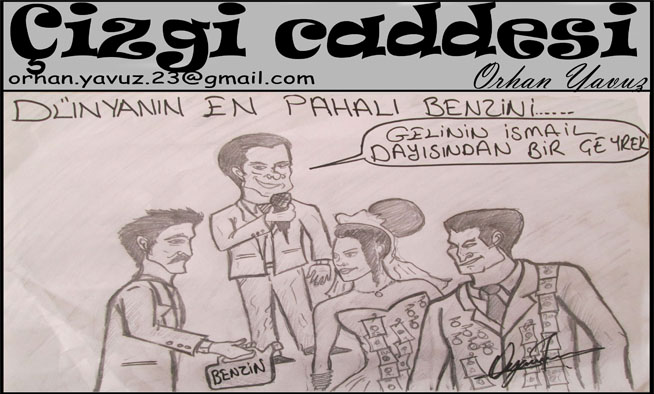 Çizgi caddesi
orhan.yavuz.23@gmail.com
Orhan Yavuz
DÜNYANIN EN PAHALI BENZİNİ......
GELİNİN İSMAİL
DAYISINDAN BİR GEYREK
BENZİN